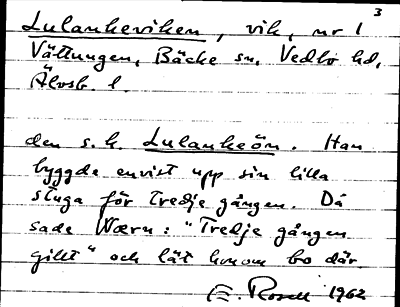 3
Lulankeviken, vik, nr 1
Vättungen, Bäcke sn, Vedbo hd,
Älvsb. l.
den s.k. Lulankeön. Han
byggde envist upp sin lilla
stuga för tredje gången. Då
sade Wærn: "Tredje gången
gillt" och lät honom bo där.
E. Rosell 1962